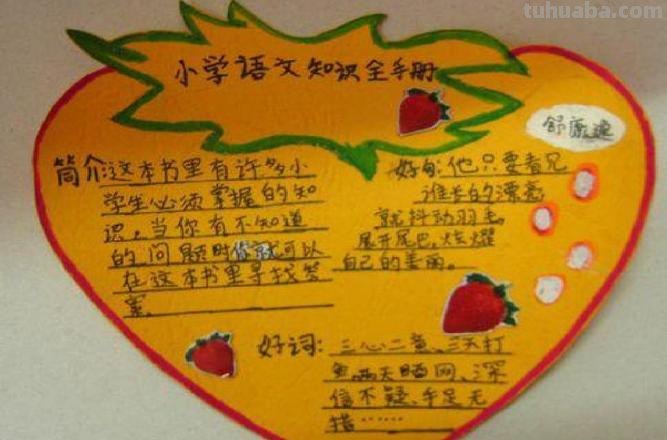 tuhuaba.com
小学语文知识全手册
舒原逸
简介:这本书里有许多小
学生必须掌握的知
识。当你有不知道
的问题时你就可以
在这本书里寻找答
案。
好句:他只要看见
谁长的漂亮
就抖动羽毛。
展开尾巴。炫耀
自己的美丽。
好词:三心二意、三天打
鱼两天晒网、深
信不疑、手足无
措……